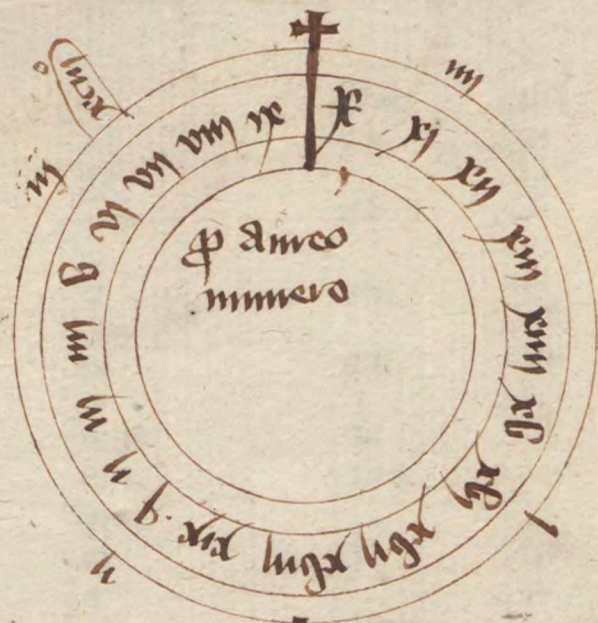 ꝓ aureo
numero
x
xi
xii
xiii
xiiii
xv
xvi
xvii
xviii
xix
i
ii
iii
iiii
v
vi
vii
viii
ix
iiii
i
ii
iii